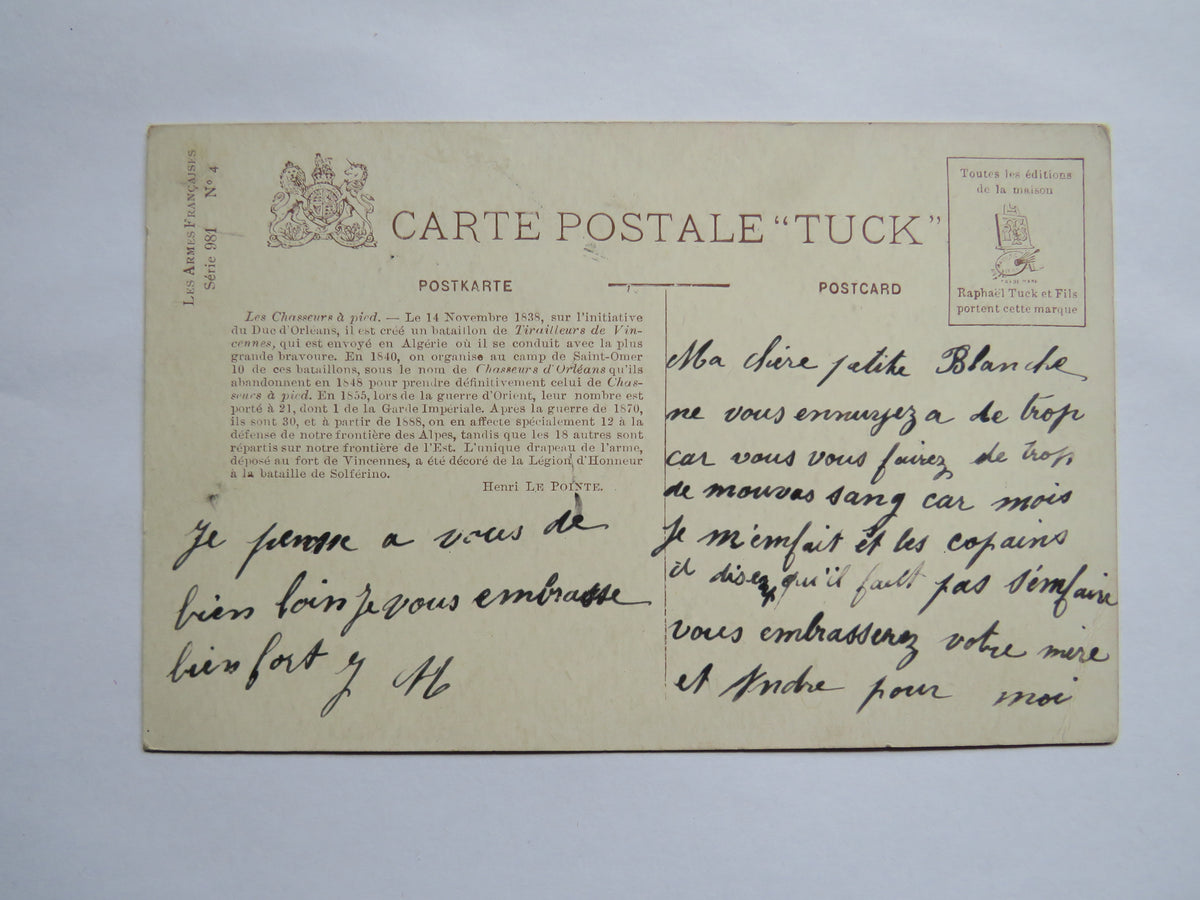 LES ARMES FRANÇAISES
Série 981 N° 4
CARTE POSTALE "TUCK"
POSTKARTE
POSTCARD
Toutes les éditions
de la maison
TRADE MARK
Raphaël Tuck et Fils
portent cette marque
Les Chasseurs à pied. — Le 14 Novembre 1838, sur l'initiative
du Duc d'Orléans, il est créé un bataillon de Tirailleurs de Vin-
cennes, qui est envoyé en Algérie où il se conduit avec la plus
grande bravoure. En 1840, on organise au camp de Saint-Omer
10 de ces bataillons, sous le nom de Chasseurs d'Orléans qu'ils
abandonnent en 1848 pour prendre définitivement celui de Chas-
seurs à pied. En 1855, lors de la guerre d'Orient, leur nombre est
porté à 21, dont 1 de la Garde Impériale. Après la guerre de 1870,
ils sont 30, et à partir de 1888, on en affecte spécialement 12 à la
défense de notre frontière des Alpes, tandis que les 18 autres sont
répartis sur notre frontière de l'Est. L'unique drapeau de l'arme,
déposé au fort de Vincennes, a été décoré de la Légion d'Honneur
à la bataille de Solférino.
Henri LE POINTE.
Ma chère petite Blanche
ne vous ennuyez a de trop
car vous vous fairez de trop
de mouvas sang car mois
Je m'emfait et les copains
il disez qu'il fallt pas s'émfaire
vous embrasserez votre mère
et Andre pour moi
Je pensse a vous de
bien loin Je vous embrasse
bien fort J M